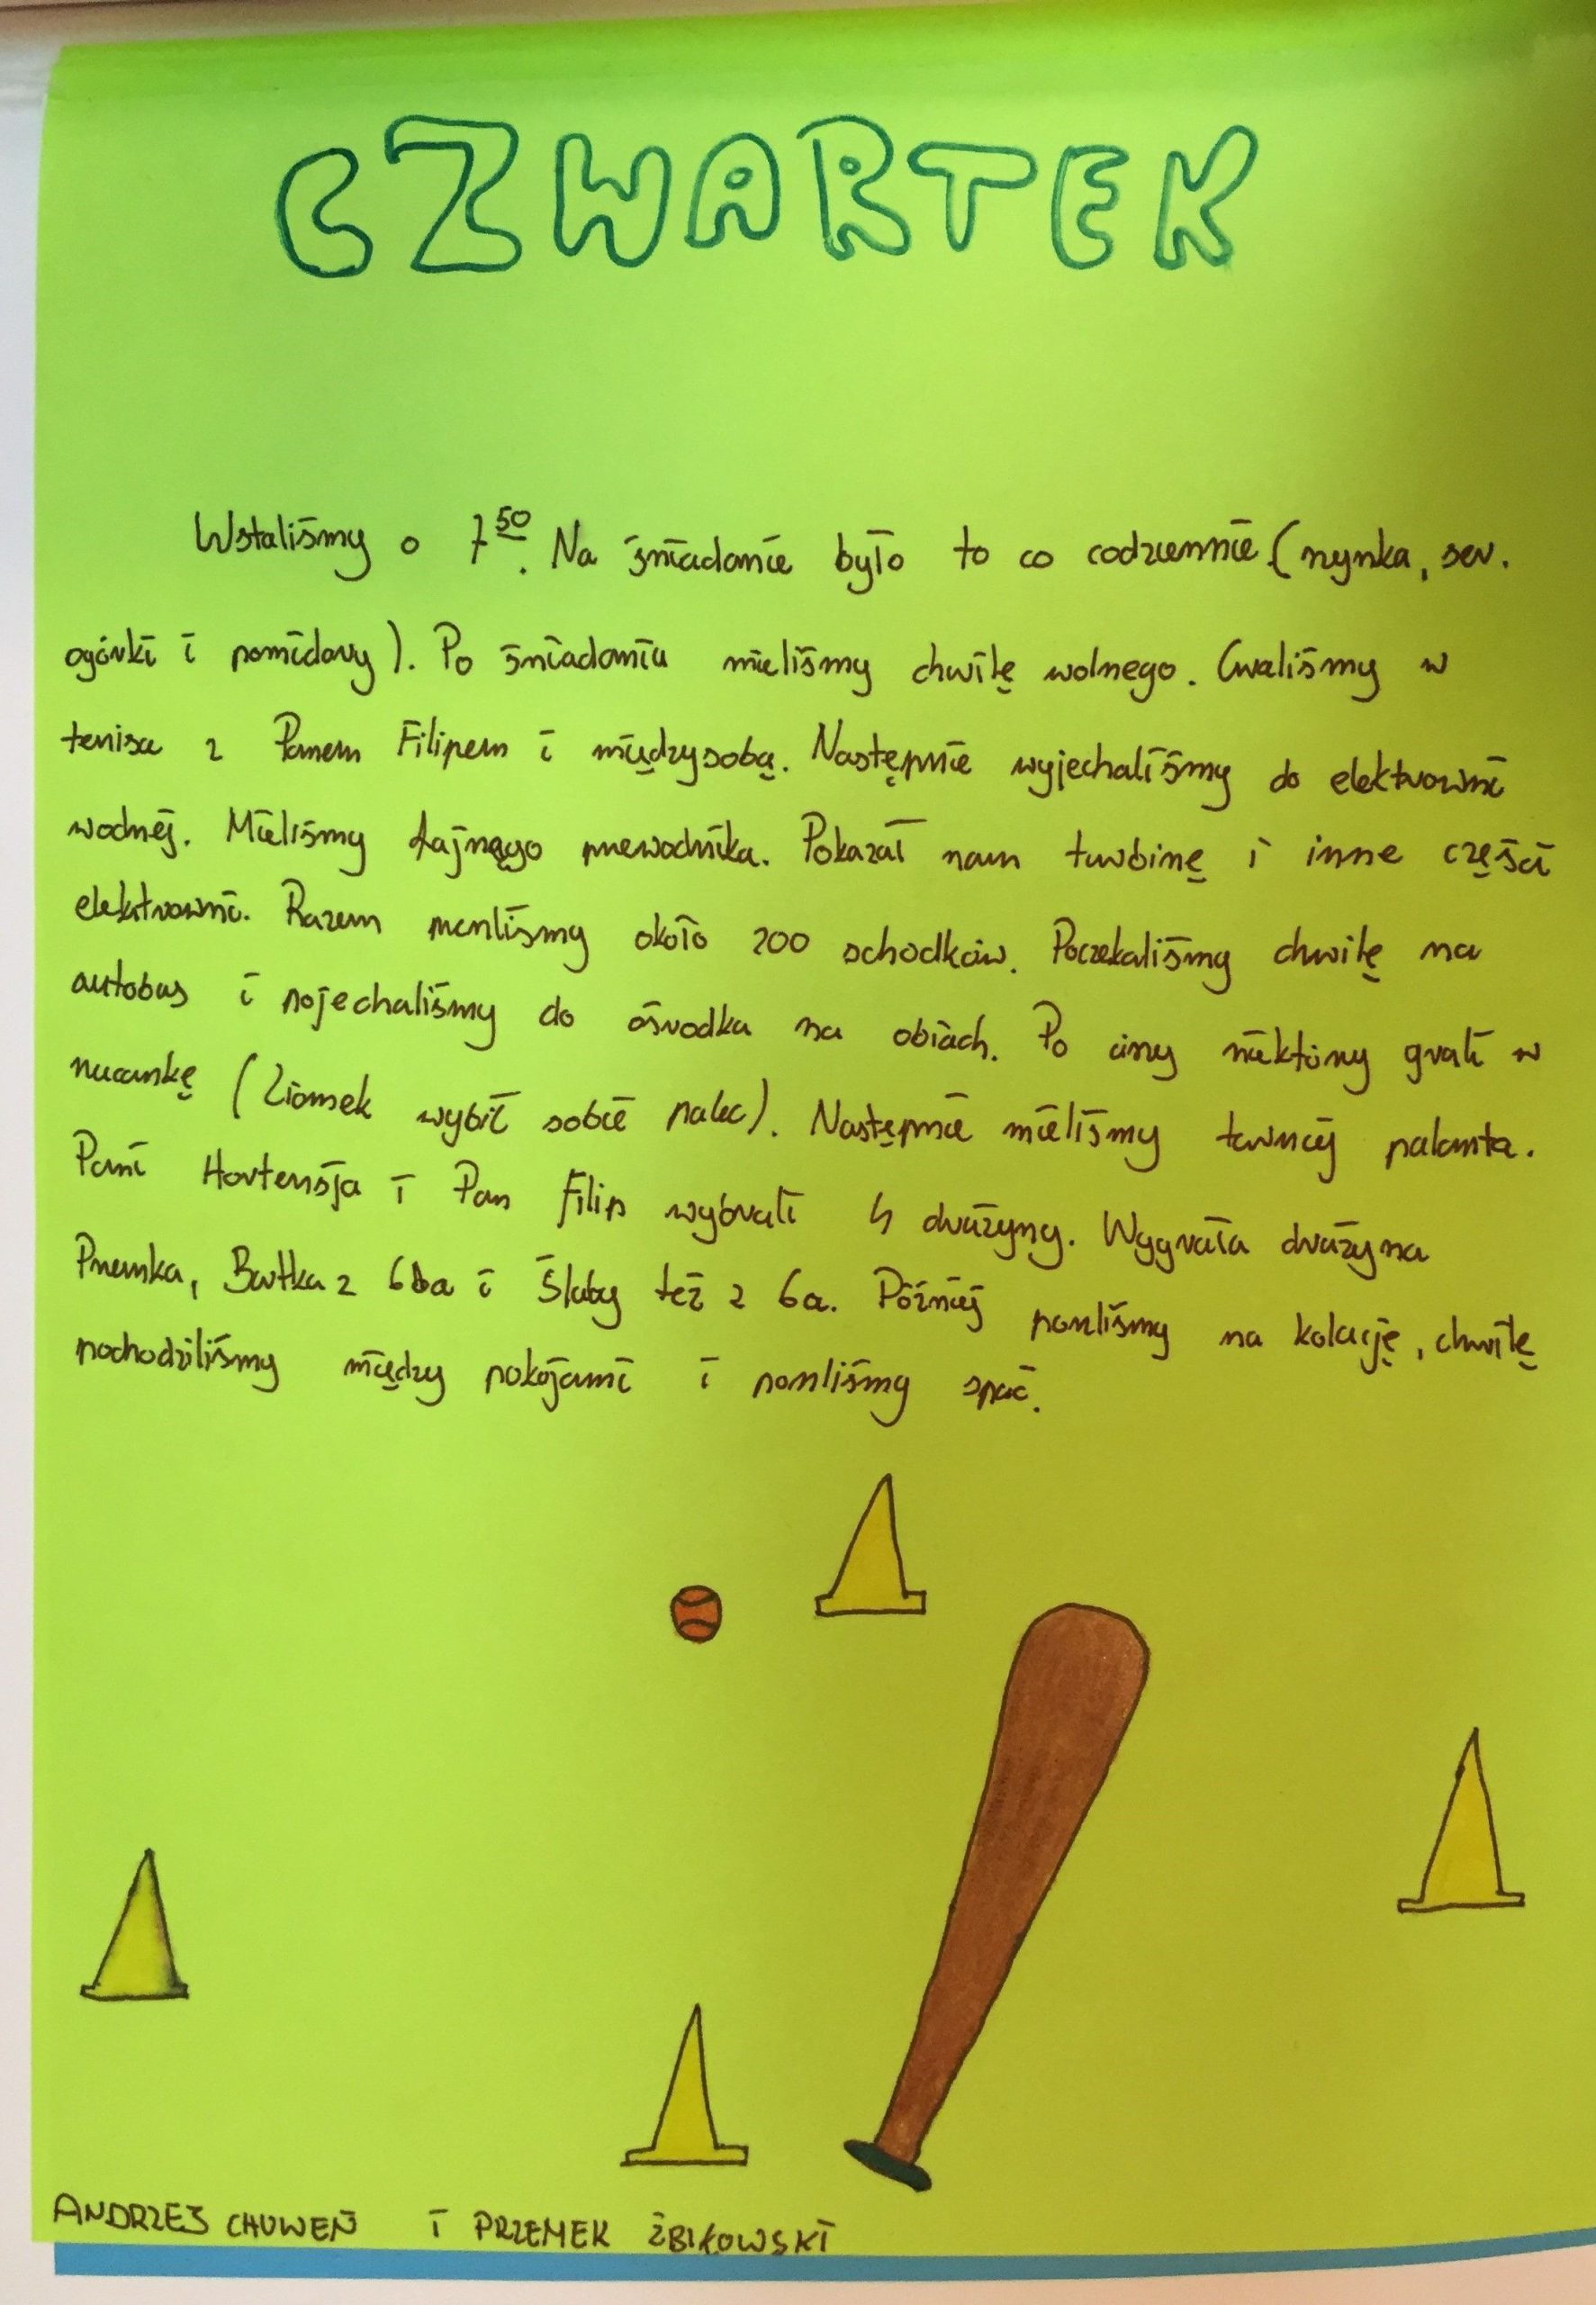 CZWARTEK
Wstaliśmy o 7 50. Na śniadanie było to co codziennie (szynka, ser,
ogórki i pomidory). Po śniadaniu mieliśmy chwilę wolnego. Graliśmy w
tenisa z Panem Filipem i międzysobą. Następnie wyjechaliśmy do elektrowni
wodnej. Mieliśmy fajnego przewodnika. Pokazał nam turbinę i inne części
elektrowni. Razem przeszliśmy około 200 schodków. Poczekaliśmy chwilę na
autobus i pojechaliśmy do ośrodka na obiad. Po ciszy niektórzy grali w
rzucankę (Ziomek wybił sobie palec). Następnie mieliśmy turniej palanta.
Pani Hortensja i Pan Filip wybrali 4 drużyny. Wygrała drużyna
Przemka, Bartka z 6a i Śluby też z 6a. Później poszliśmy na kolację, chwilę
pochodziliśmy między pokojami i poszliśmy spać.
ANDRZEJ CHUWEŃ I PRZEMEK ŻBIKOWSKI